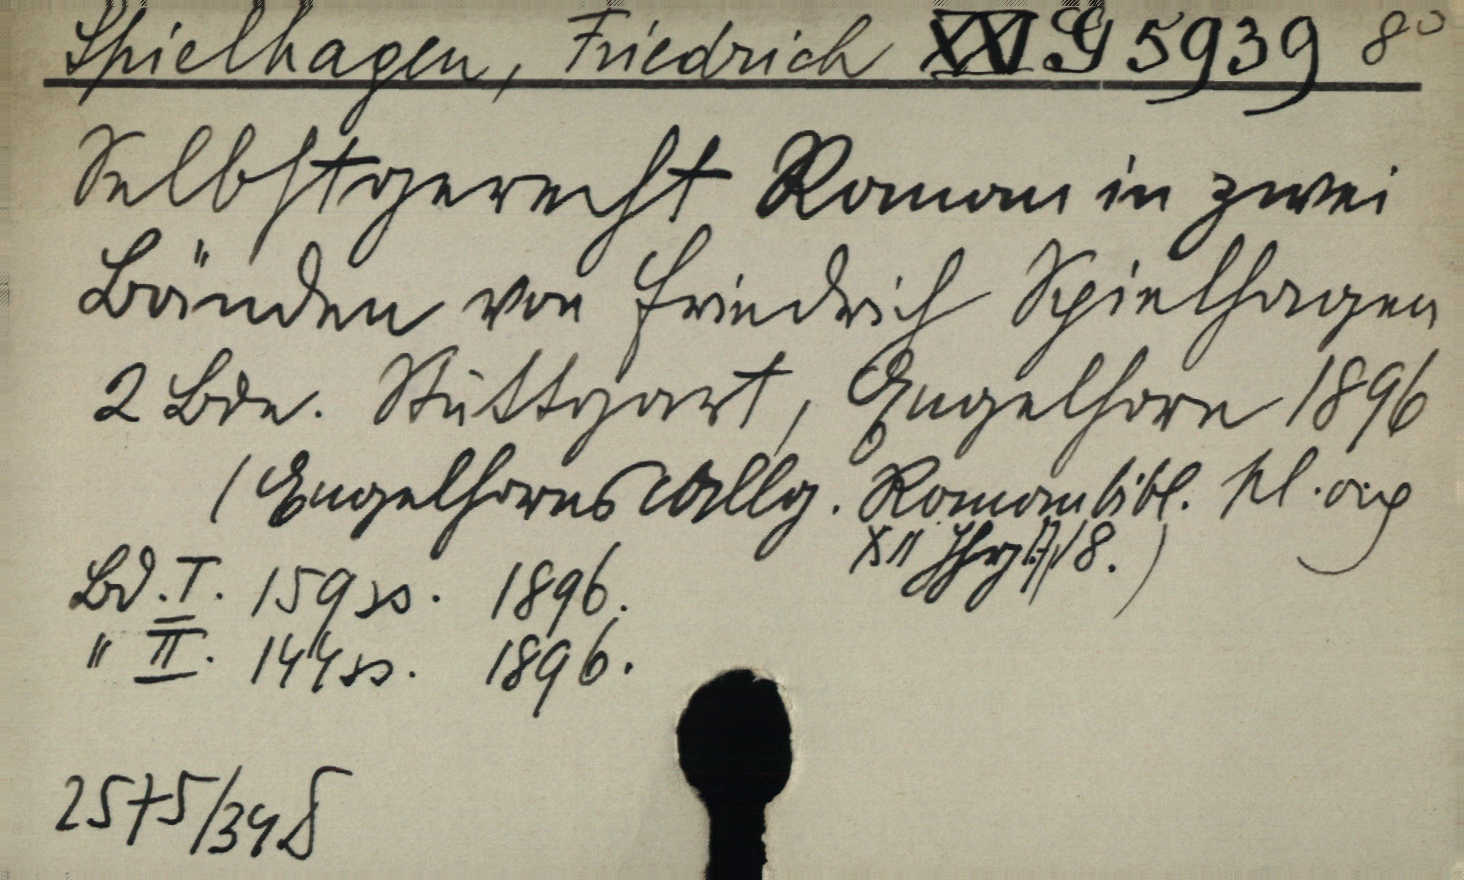 Spielhagen, Friedrich XXI G 5939 8°
Selbstgerecht Roman in zwei
Bänden von Friedrich Spielhagen
2 Bde. Stuttgart, Engelhorn 1896
(Engelhorns Allg. Romanbibl.
XII Jhrg. 17/18.)
Bd. I. 159 ss. 1896.
" II. 144 ss. 1896.
2575/34